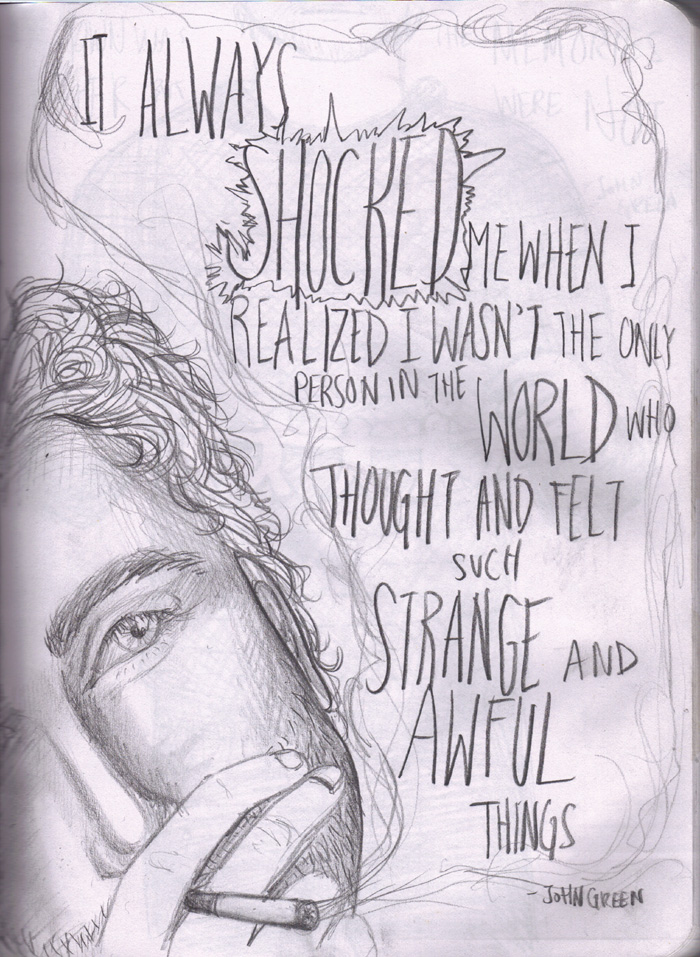 IT ALWAYS
SHOCKED
ME WHEN I
REALIZED I WASN'T THE ONLY
PERSON IN THE
WORLD WHO
THOUGHT AND FELT
SUCH
STRANGE AND
AWFUL
THINGS
- JOHN GREEN